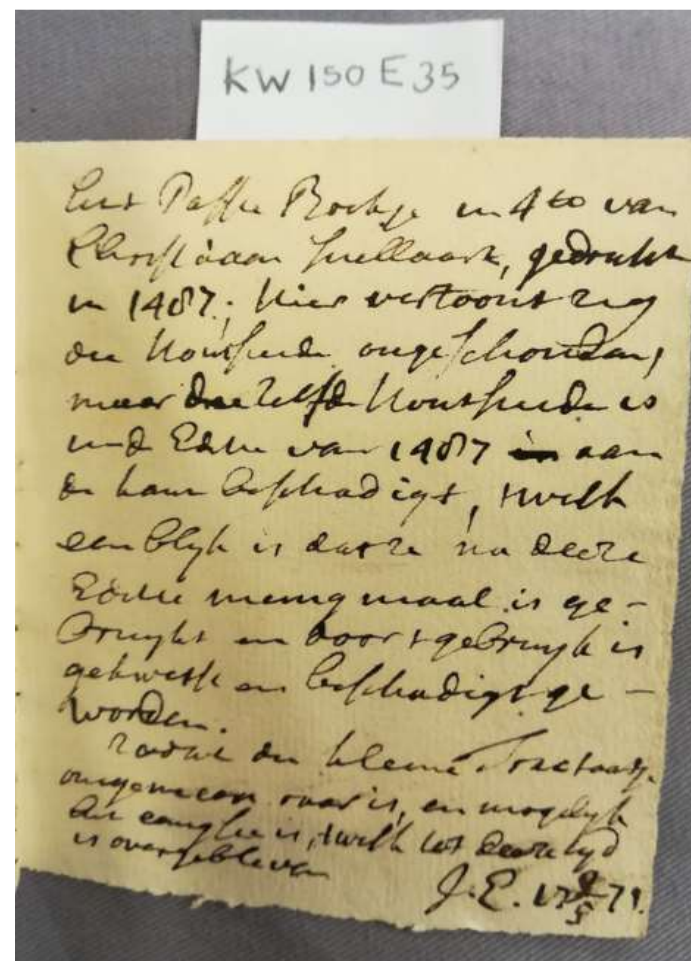 KW 150 E 35
het Passie Boekje in 4to van
Christiaan Snellaart, gedrukt
in 1487; hier vertoont zig
die houtsnede ongeschonden,
maar die zelfde houtsnede is
in d' Editie van 1487 aan
de kant beschadigt, 'twelk
een blyk is dat ze na deeze
Editie menigmaal is ge-
bruykt en door 't gebruyk is
gekwest en beschadigt ge-
worden.
zodat dit kleine Tractaatje
ongemeen raar is, en mogelyk
het eenigste is, 'twelk tot deeze tyd
is overgebleven
J. E. 17 9/5 71.